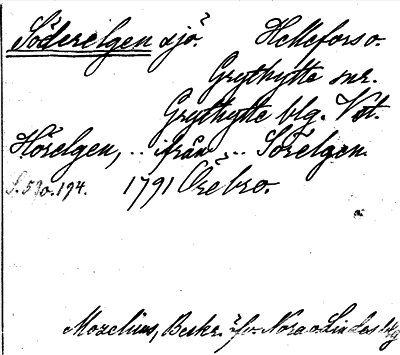 Söderelgen sjö. Hellefors o.
Grythytte snr.
Grythytte blg. Vst.
Hörelgen, .. ifrån .. Sörelgen.
1791 Örebro.
Mozelius, Beskr. Nora o. Lindesbg